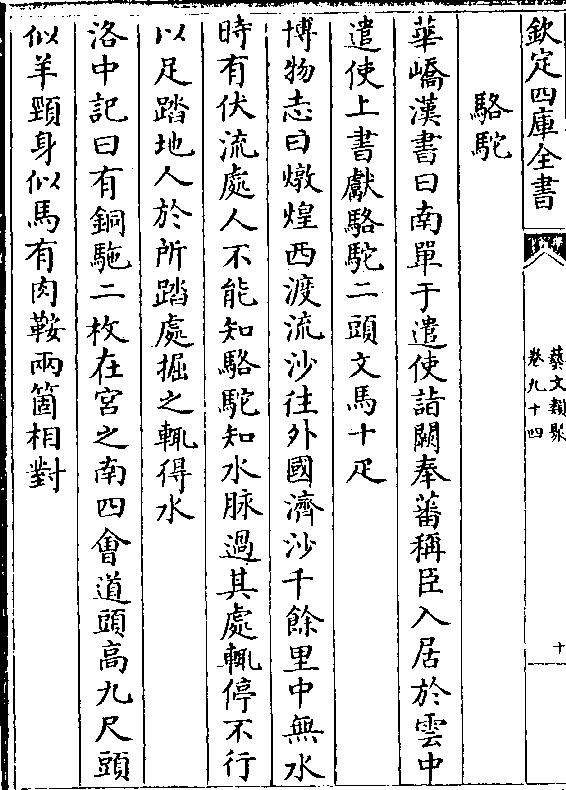 欽定四庫全書
藝文類聚
卷九十四
十
駱駝
華嶠漢書曰南單于遣使詣闕奉蕃稱臣入居於雲中
遣使上書獻駱駝二頭文馬十疋
博物志曰燉煌西渡流沙往外國濟沙千餘里中無水
時有伏流處人不能知駱駝知水脉過其處輒停不行
以足踏地人於所踏處掘之輒得水
洛中記曰有銅駞二枚在宫之南四會道頭高九尺頭
似羊頸身似馬有肉鞍兩箇相對